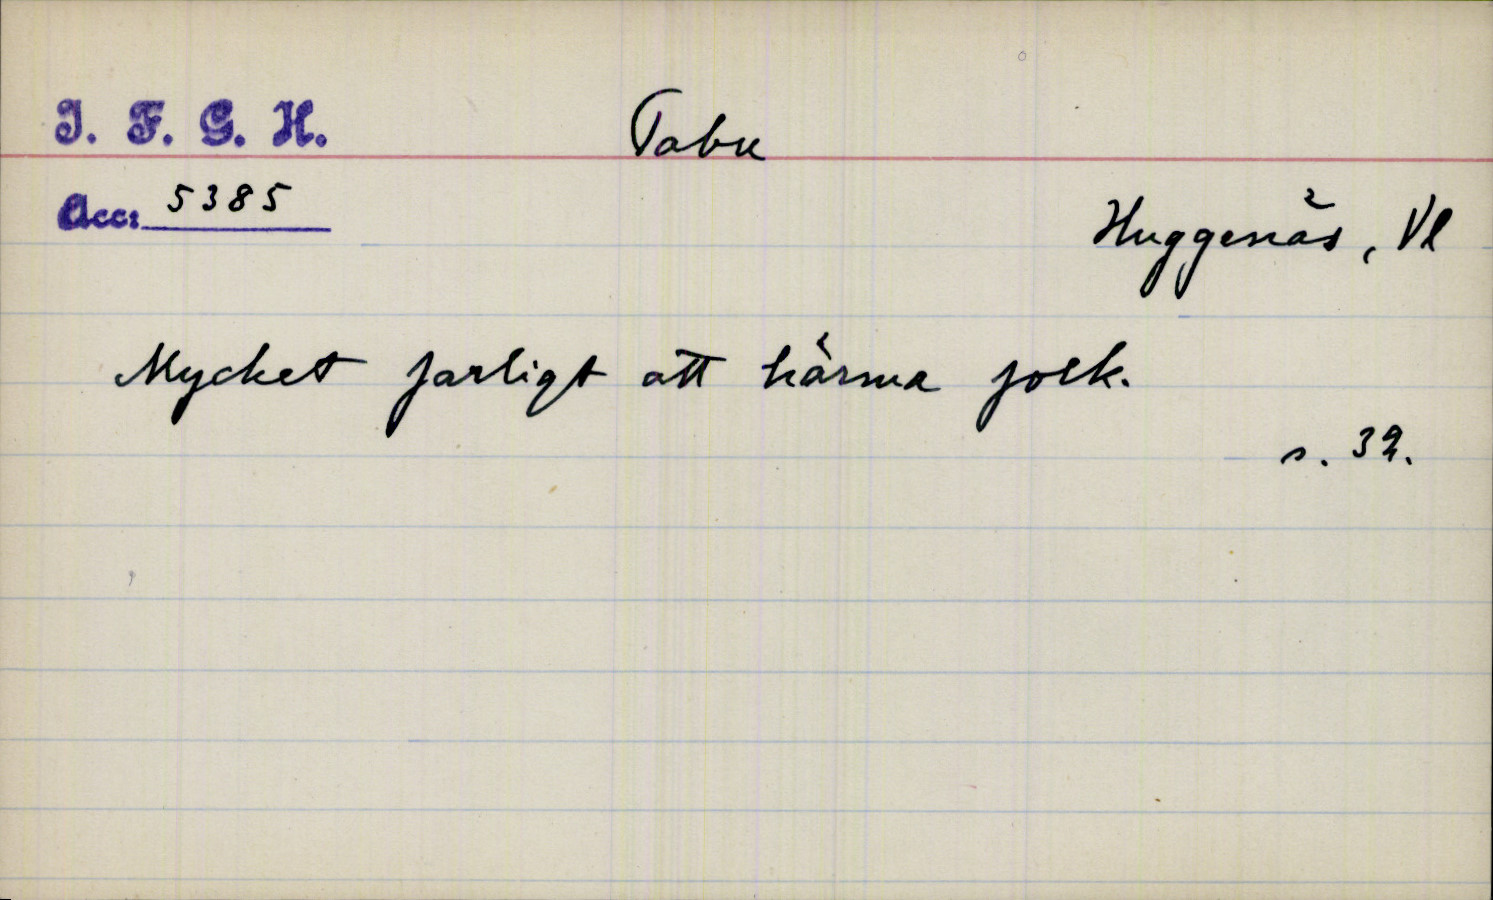 I. F. G. H.
Tabu
Acc: 5385
Huggenäs, Vl
Mycket farligt att härma folk.
s. 32.